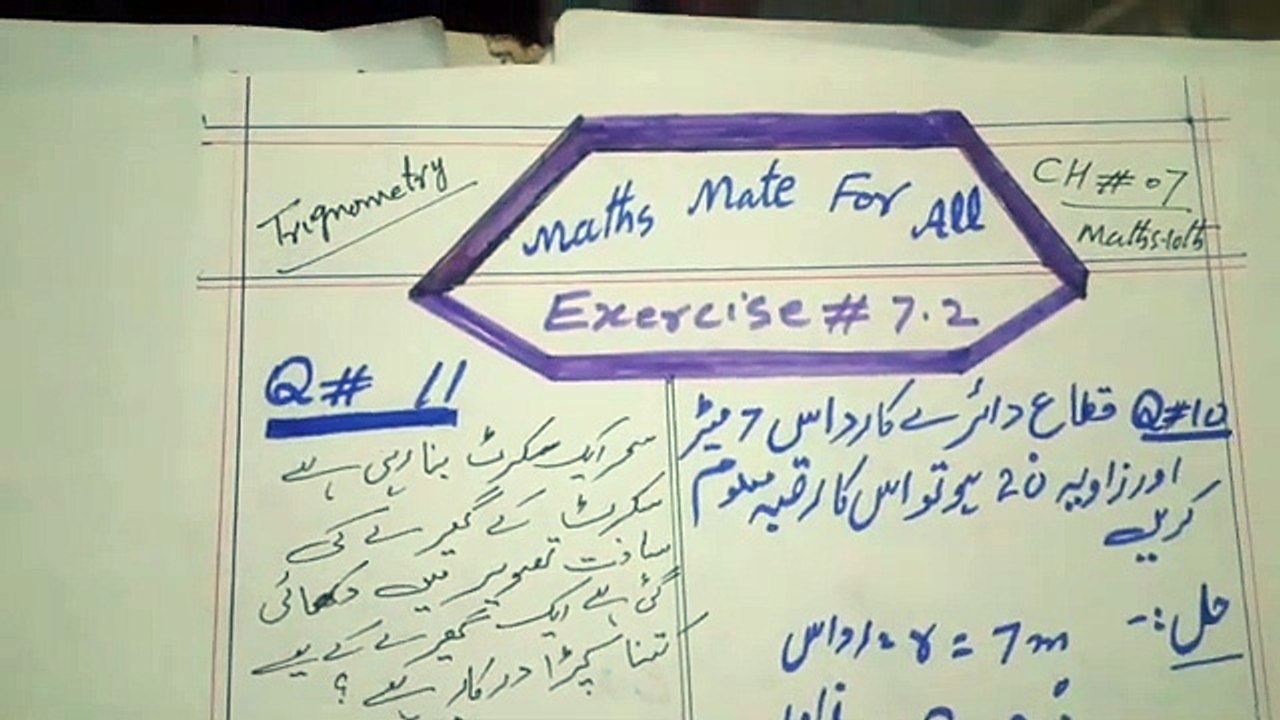 Trignometry
Maths Mate For All
CH # 07
Maths 10th
Exercise # 7.2
Q#10 قطاع دائرے کا رداس 7 میٹر
اور زاویہ 20° ہو تو اس کا رقبہ معلوم
کریں
حل :-
رداس = r = 7m
Q# 11
سحر ایک سکرٹ بنا رہی ہے
سکرٹ کے گھیرے کی
ساخت تصویر میں دکھائی
گئی ہے ایک گھیرے کے لیے
کتنا کپڑا درکار ہے ؟